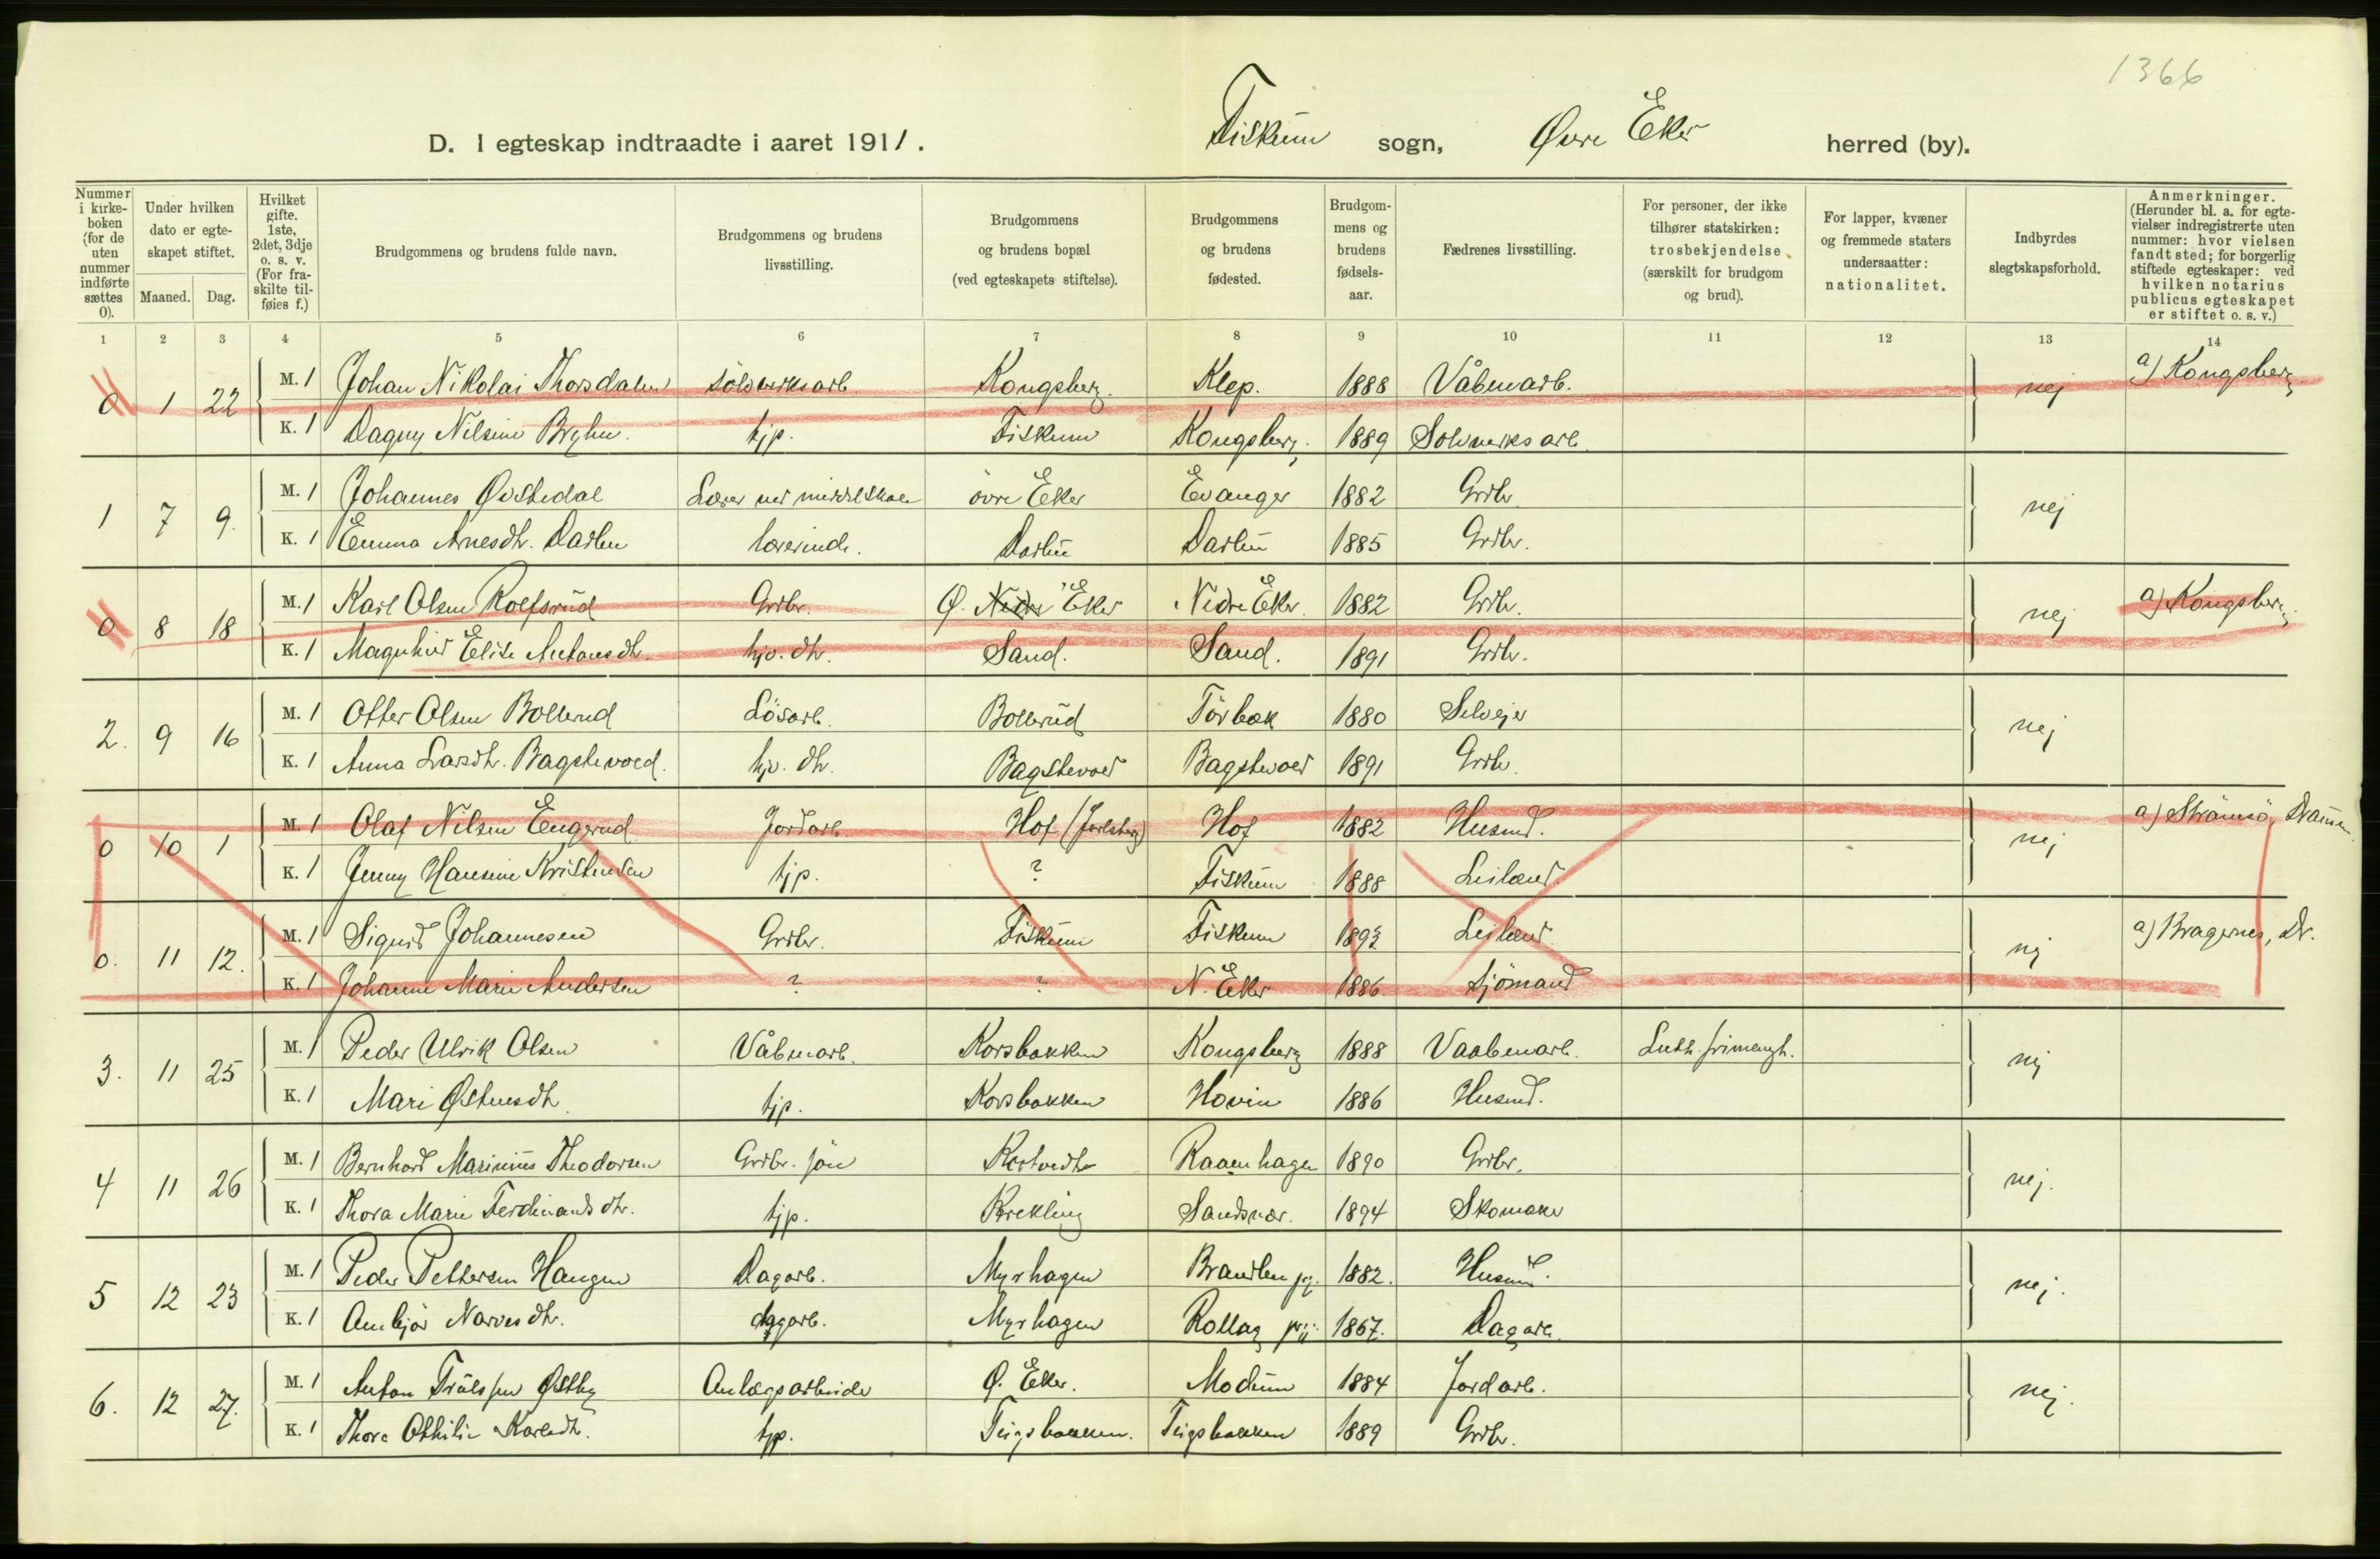 1366
D. I egteskap indtraadte i aaret 1911. Fiskum sogn, Øvre Eker herred (by).
Nummer i kirkeboken (for de uten nummer indførte sættes 0). Under hvilken dato er egteskapet stiftet. Maaned. Dag. Hvilket gifte. 1ste, 2det, 3dje o. s. v. (For fraskilte tilføies f.) Brudgommens og brudens fulde navn. Brudgommens og brudens livsstilling. Brudgommens og brudens bopæl (ved egteskapets stiftelse). Brudgommens og brudens fødested. Brudgommens og brudens fødselsaar. Fædrenes livsstilling. For personer, der ikke tilhører statskirken: trosbekjendelse. (særskilt for brudgom og brud). For lapper, kvæner og fremmede staters undersaatter: nationalitet. Indbyrdes slegtskapsforhold. Anmerkninger. (Herunder bl. a. for egtevielser indregistrerte uten nummer: hvor vielsen fandt sted; for borgerlig stiftede egteskaper: ved hvilken notarius publicus egteskapet er stiftet o. s. v.)
1 2 3 4 5 6 7 8 9 10 11 12 13 14
0 1 22 M. 1 Johan Nikolai Thorsdalen sölvverksarb. Kongsberg. Klep. 1888 Våbenarb. nej a) Kongsberg
K. 1 Dagny Nilsine Bryhn. tjp. Fiskum Kongsberg. 1889 Solvverksarb.
1 7 9. M. 1 Johannes Qvistedal Lærer ved middelskolen övre Eker Evanger 1882 Grdbr. nej
K. 1 Emma Arnesdtr. Darbu lærerinde. Darbu Darbu 1885 Grdbr.
0 8 18 M. 1 Karl Olsen Rolfsrud Grdbr. Ø. Nedre Eker Nedre Eker. 1882 Grdbr. nej a) Kongsberg
K. 1 Magnhild Elise Antonsdtr. hjv. dtr. Sand. Sand. 1891 Grdbr.
2. 9 16 M. 1 Otter Olsen Bollerud Lösarb. Bollerud Törbak 1880 Selveier nej
K. 1 Anna Larsdtr. Bagstevold. hjv. dtr. Bagstevold Bagstevold 1891 Grdbr.
0 10 1 M. 1 Olaf Nilsen Engerud Jordarb. Hof (Jarlsberg) Hof 1882 Husmd. nej a) Strömsö, Drammen
K. 1 Jenny Hansine Kristensen tjp. ? Fiskum 1888 Leilænd.
0. 11 12. M. 1 Sigurd Johannesen Grdbr. Fiskum Fiskum 1892 Leilænd. nej a) Bragernes, Dr.
K. 1 Johanne Marie Andersen ? ? N. Eker 1886 Sjömand
3. 11 25 M. 1 Peder Ulrik Olsen Våbenarb. Korsbakken Kongsberg 1888 Vaabenarb. Luth. frimengh. nej
K. 1 Mari Østensdtr. tjp. Korsbakken Hovin 1886 Husmd.
4 11 26 M. 1 Bernhard Marinius Theodorsen Grdbr. sön Raaenhagen 1890 Grdbr. nej.
K. 1 Thora Marie Ferdinandsdtr. tjp. Krekling Sandsvær. 1894 Skomaker
5 12 23 M. 1 Peder Pettersen Haugen Dagarb. Myrhagen Brandbu pg. 1882. Husmd. nej.
K. 1 Ambjør Narvesdtr. dagarb. Myrhagen Rollag 1867. Dagarb.
6. 12 27. M. 1 Anton Trulssen Østby Anlægsarbeider Ø. Eker. Modum 1884 Jordarb. nej.
K. 1 Thora Othilie Karlsdtr. tjp. Teigsbakken. Teigsbakken 1889 Grdbr.